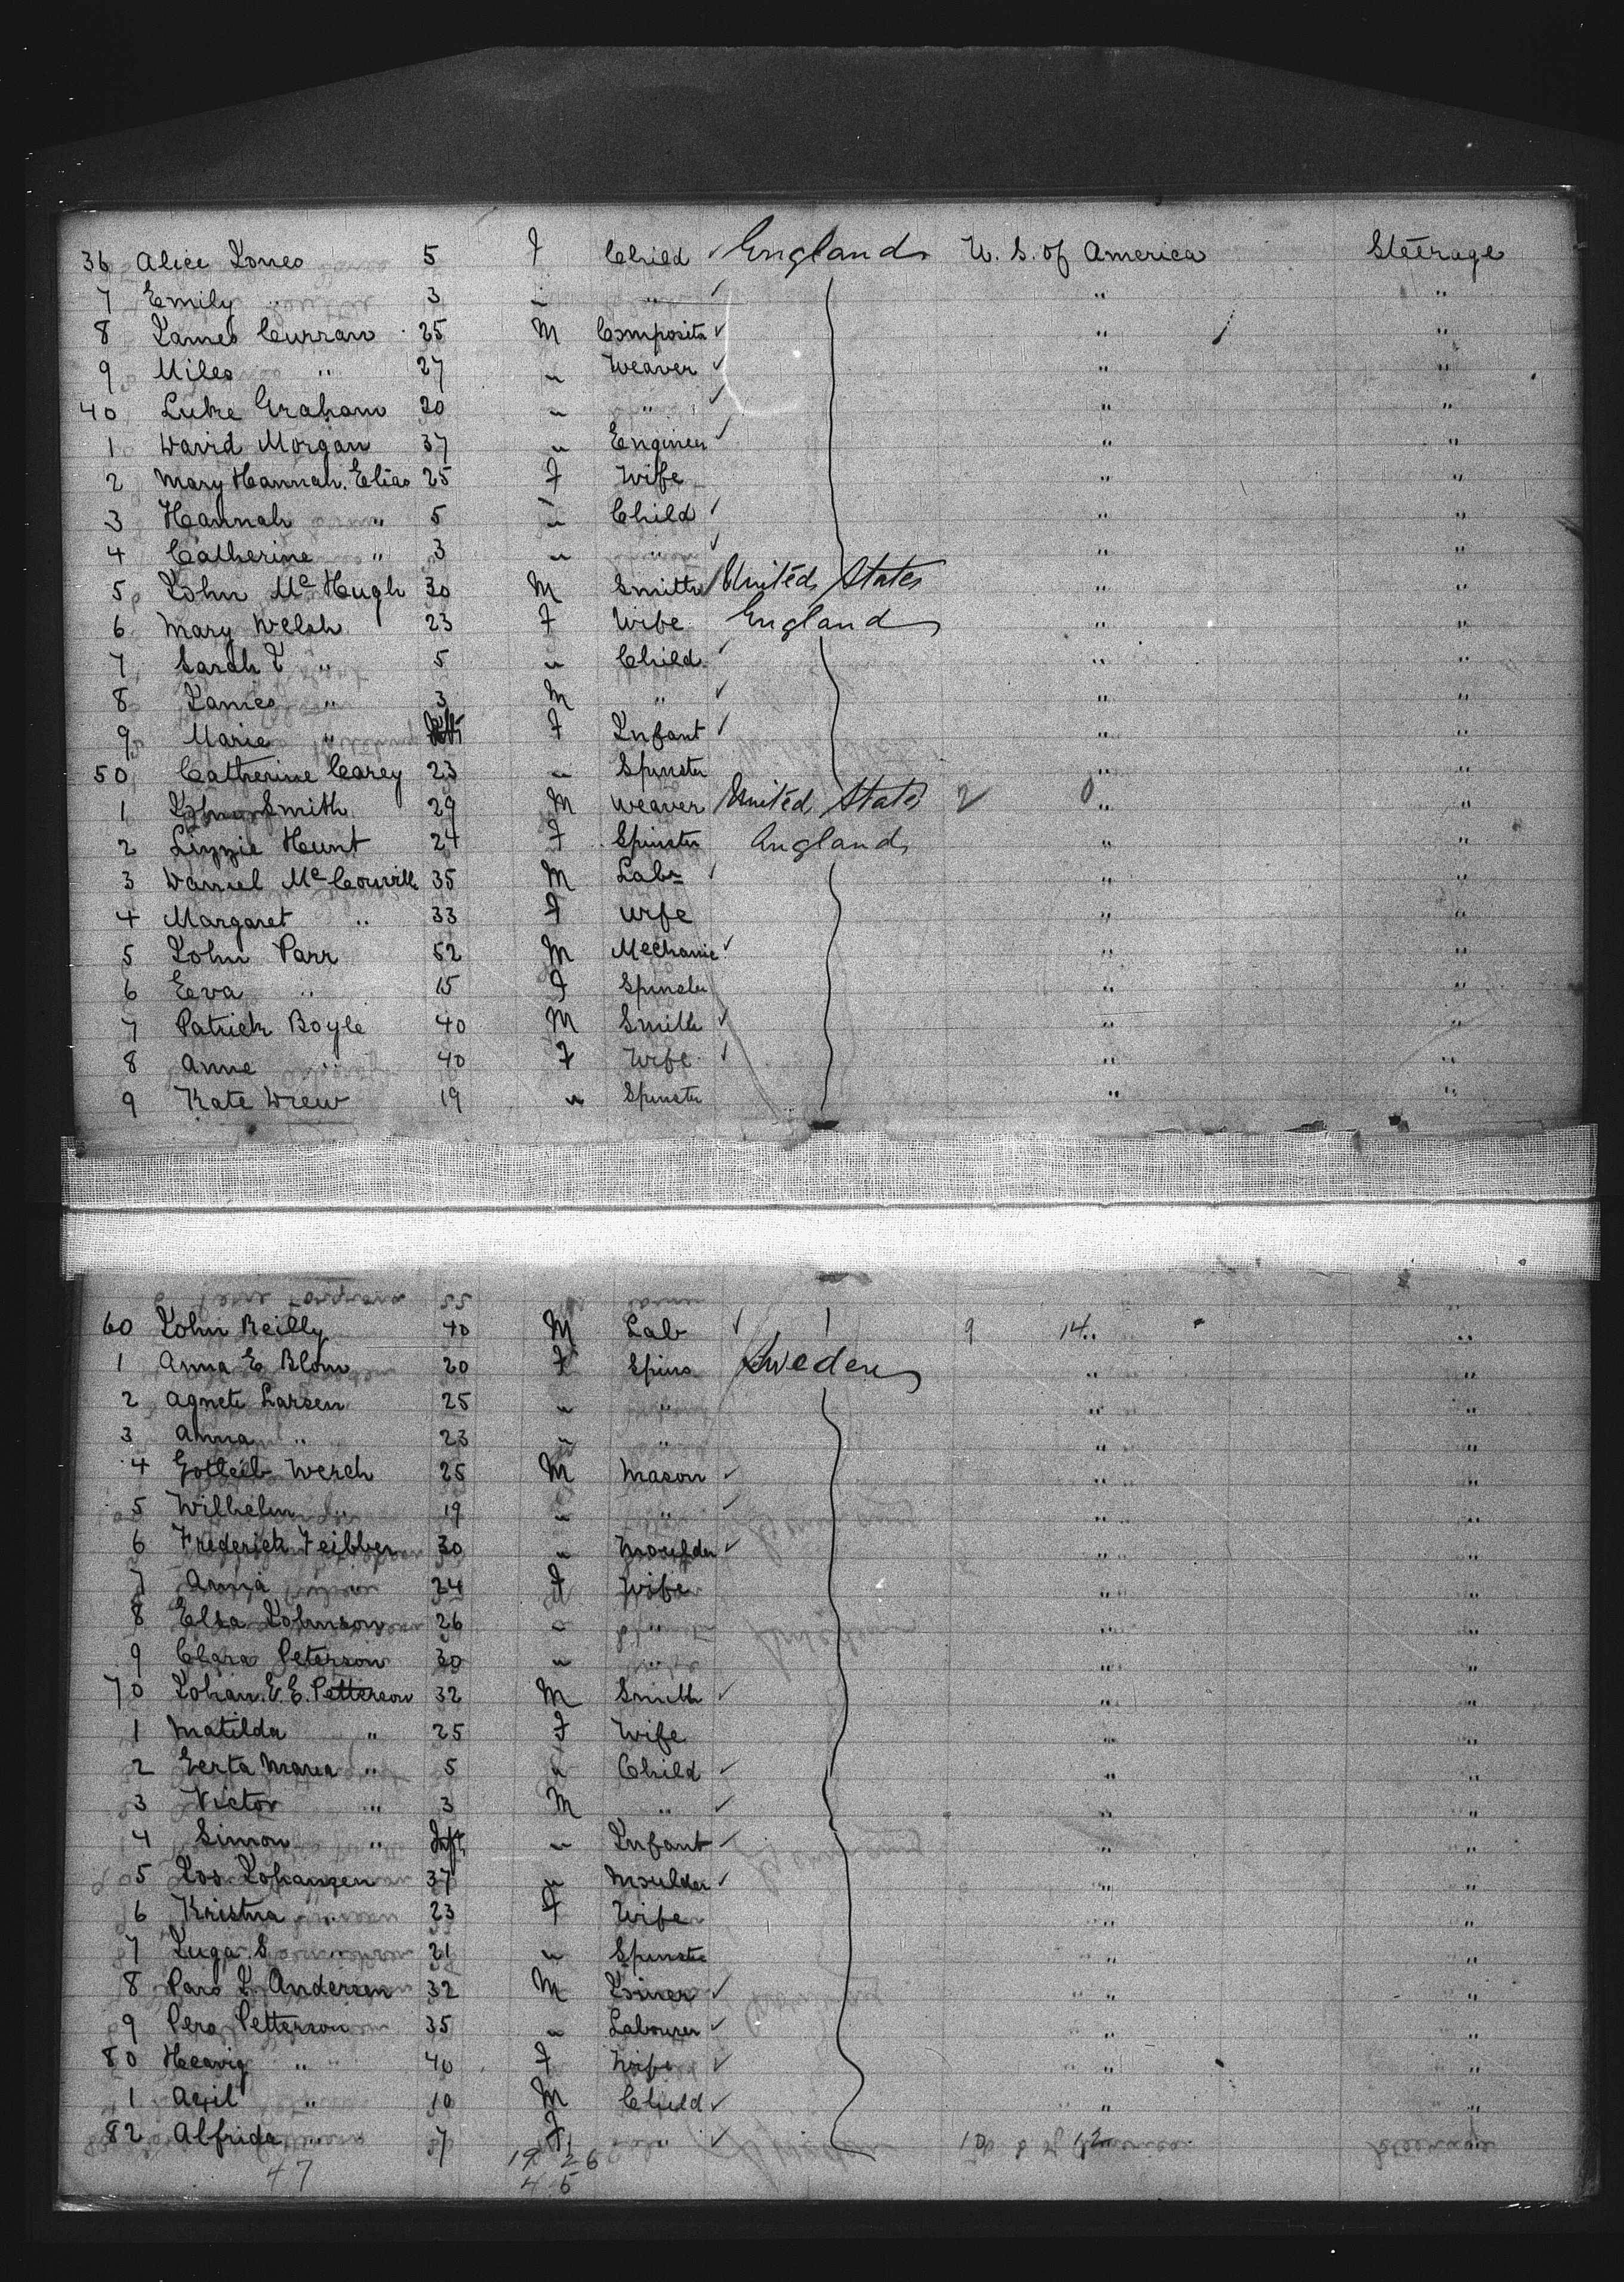 36 Alice Jones 5 F Child ✓ England U. S. of America Steerage
7 Emily " 3 " " ✓ " "
8 James Curran 25 M Composito ✓ " "
9 Miles " 27 " Weaver ✓ " "
40 Luke Graham 20 " " ✓ " "
1 David Morgan 37 " Engineer ✓ " "
2 Mary Hannah Elias 25 F Wife " "
3 Hannah " 5 " Child ✓ " "
4 Catherine " 3 " " ✓ " "
5 John McHugh 30 M Smith ✓ United States " "
6 Mary Welsh 23 F Wife England " "
7 Sarah J " 5 " Child ✓ " "
8 James " 3 M " ✓ " "
9 Marie " F Infant ✓ " "
50 Catherine Carey 23 " Spinster " "
1 John Smith 29 M Weaver United States 2 0 " "
2 Lizzie Hunt 24 F Spinster England " "
3 Daniel McConville 35 M Labr ✓ " "
4 Margaret " 33 F Wife " "
5 John Parr 52 M Mechanic ✓ " "
6 Eva " 15 F Spinster " "
7 Patrick Boyle 40 M Smith ✓ " "
8 Anne " 40 F Wife ✓ " "
9 Kate Drew 19 " Spinster " "
60 John Reilly 40 M Lab ✓ 9 14 " "
1 Anna E Blom 20 F Spins Sweden " "
2 Agnete Larsen 25 " " " "
3 Anna " 23 " " " "
4 Gotleib Werch 25 M Mason ✓ " "
5 Wilhelm " 19 " " ✓ " "
6 Frederick Feibber 30 " Moulder ✓ " "
7 Anna " 24 F Wife " "
8 Elsa Johnson 26 " " " "
9 Clara Peterson 30 " " " "
70 Johan. E. Petterson 32 M Smith ✓ " "
1 Matilda " 25 F Wife " "
2 Gerta Maria " 5 " Child ✓ " "
3 Victor " 3 M " ✓ " "
4 Simon " Inft " Infant ✓ " "
5 Jos Johansen 37 " Moulder ✓ " "
6 Kristna " 23 F Wife " "
7 Inga S 21 " Spinster " "
8 Pars J. Anderson 32 M Joiner ✓ " "
9 Pera Petterson 35 " Labourer ✓ " "
80 Hedvig " 40 F Wife ✓ " "
1 Axil " 10 M Child ✓ " "
82 Alfrida " 7 F " ✓ 10 12
47 19 26
4 5